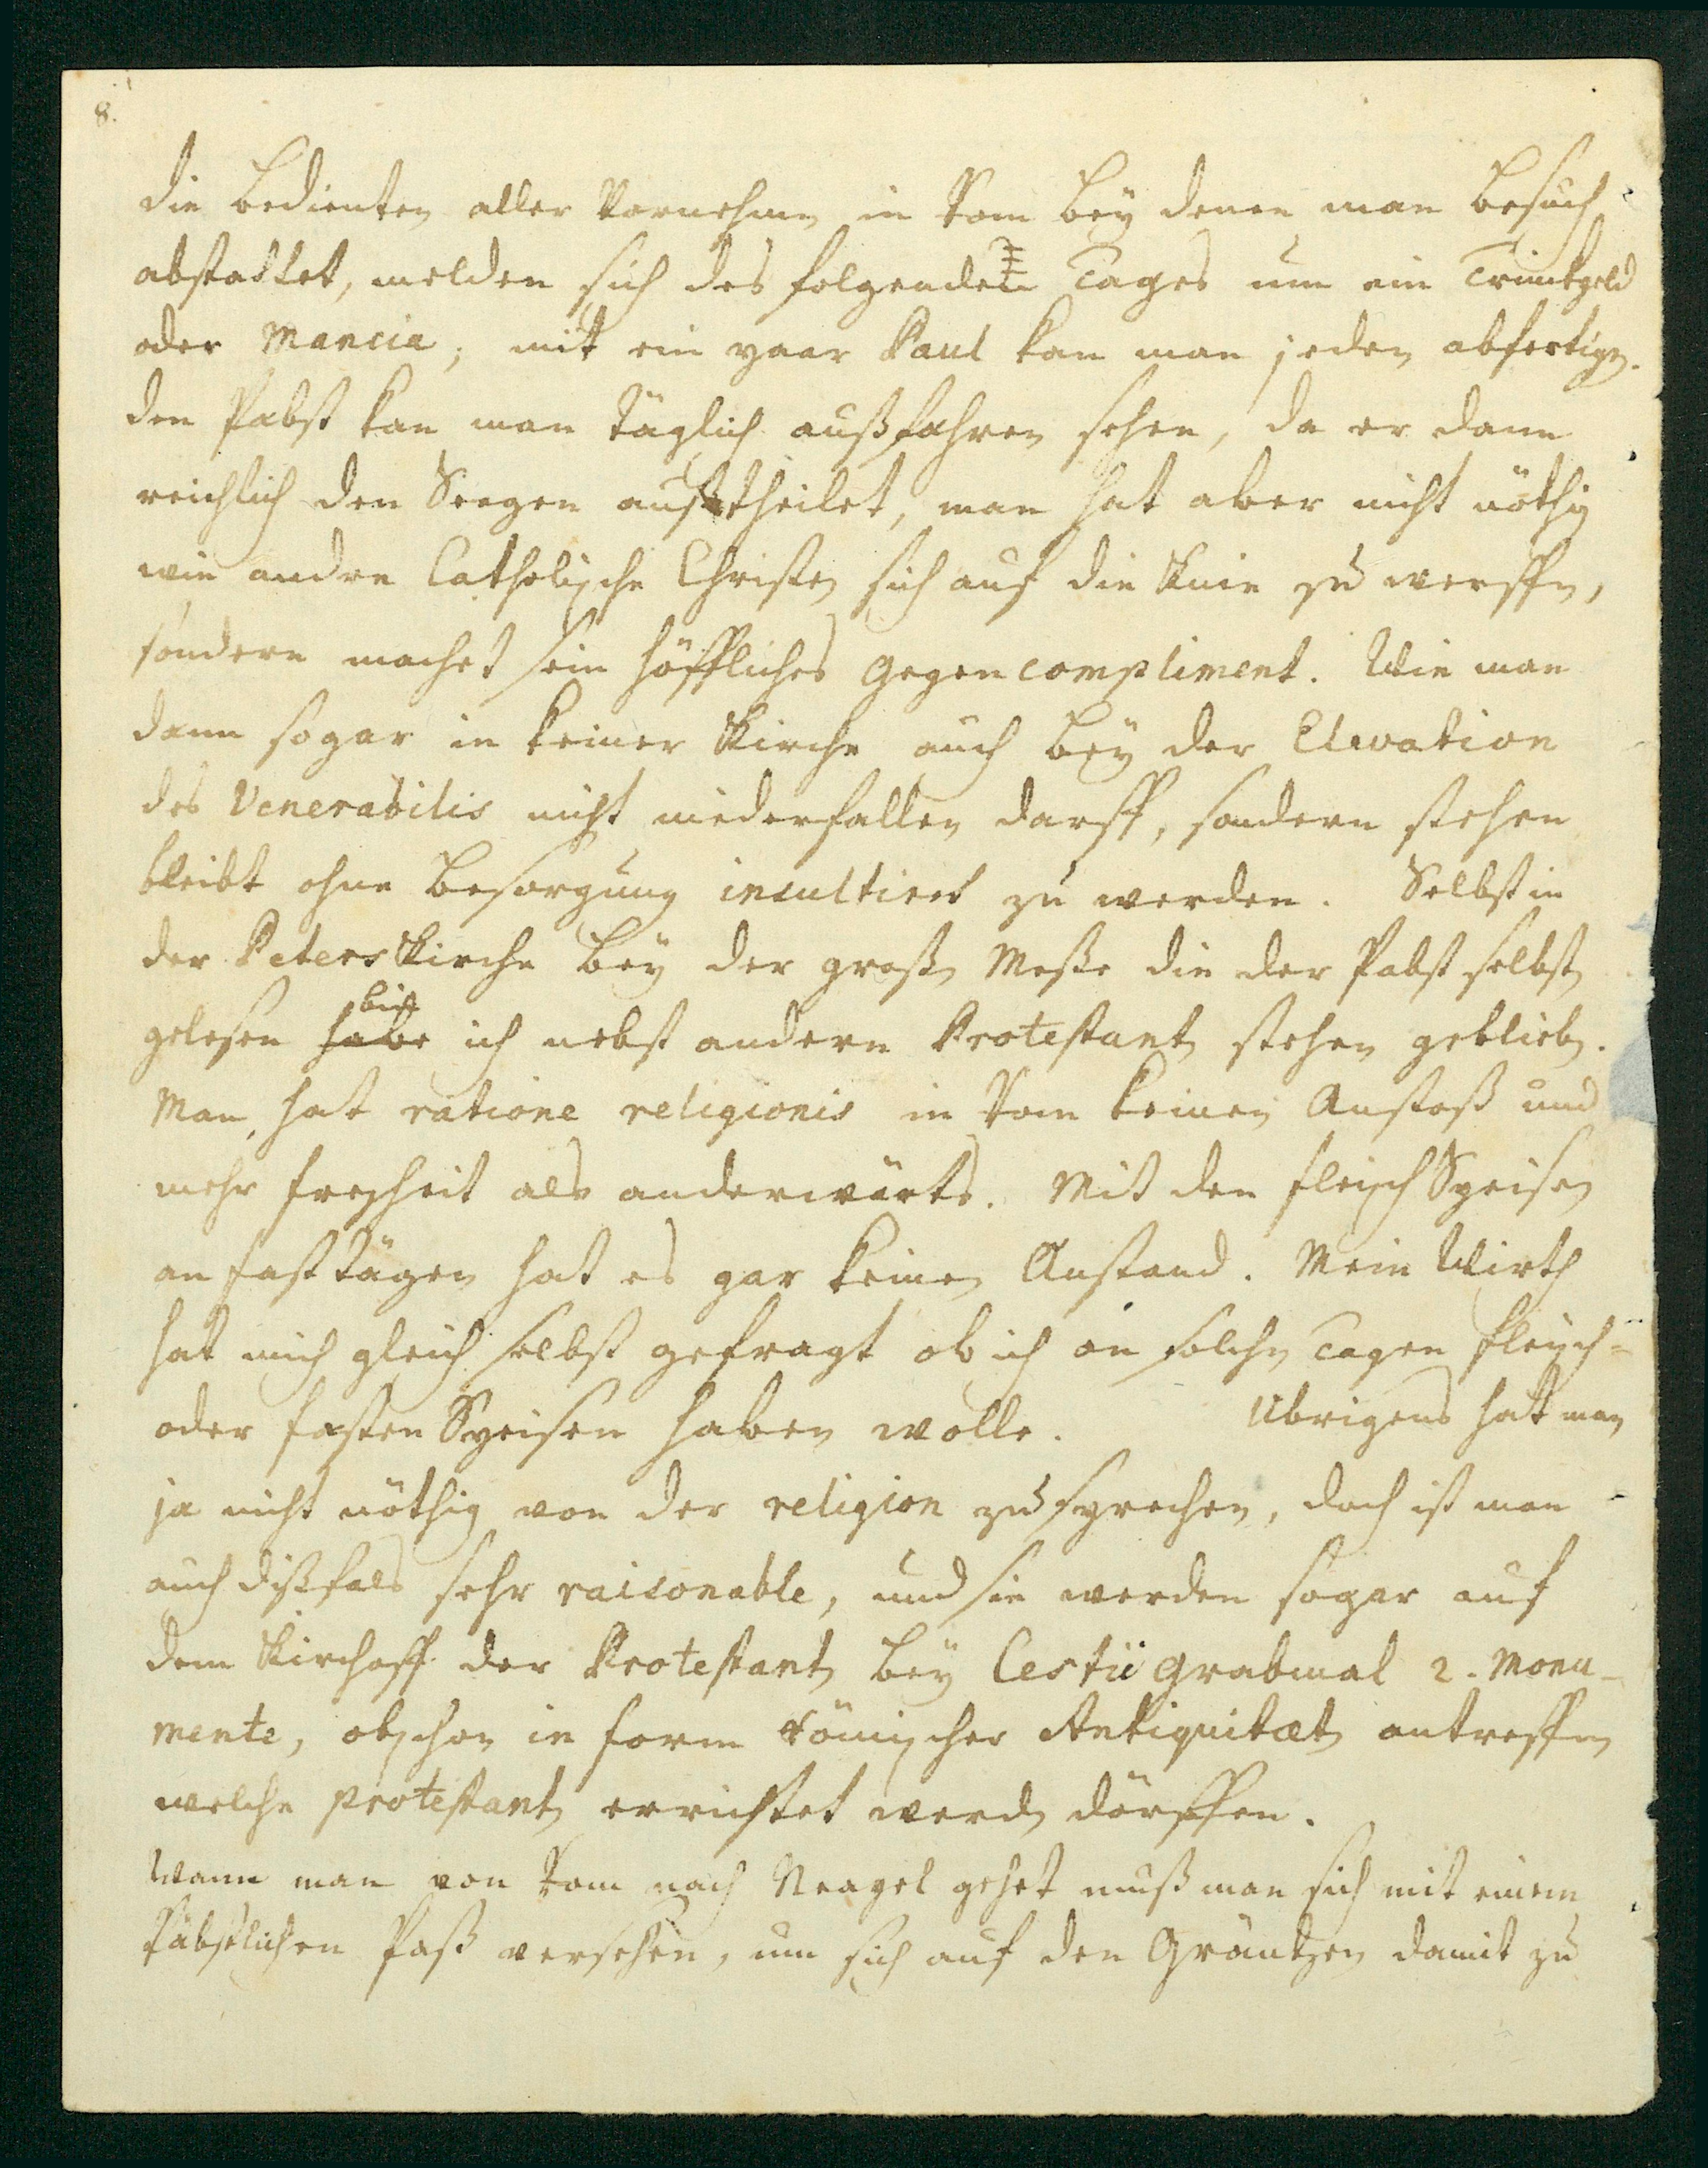 8.
die Bedienten aller Vornehmen in Rom bey denen man Besuch
abstattet, melden sich des folgenden Tages um ein Trinkgeld
oder Mancia; mit ein paar Paul kan man jeden abfertigen.
den Pabst kan man täglich außfahren sehen, da er dann
reichlich den Seegen austheilet, man hat aber nicht nöthig
wie andre Catholische Christen sich auf die Knie zu werffen,
sondern machet sein höffliches Gegencompliment. Wie man
dann sogar in keiner Kirche auch bey der Elevation
des Venerabilis nicht niederfallen darff, sondern stehen
bleibt ohne Besorgung insultiret zu werden. Selbst in
der Peterskirche bey der großen Meße die der Pabst selbst
gelesen habe bin ich nebst andern Protestanten stehen geblieben.
Man hat ratione religionis in Rom keinen Anstoß und
mehr freyheit als anderwärts. Mit den fleischSpeisen
an fasttägen hat es gar keinen Anstand. Mein Wirth
hat mich gleich selbst gefragt ob ich an solchen Tagen fleisch-
oder fastenSpeisen haben wolle. Übrigens hat man
ja nicht nöthig von der religion zu sprechen, doch ist man
auch dißfals sehr raisonable, und sie werden sogar auf
dem Kirchoff der Protestanten bey Cestii Grabmal 2. Monu-
mente, obschon in form römischer Antiquitæten antreffen
welche protestanten errichtet werden dörffen.
Wann man von Rom nach Neapel gehet muß man sich mit einem
Päbstlichen Paß versehen, um sich auf den Gräntzen damit zu